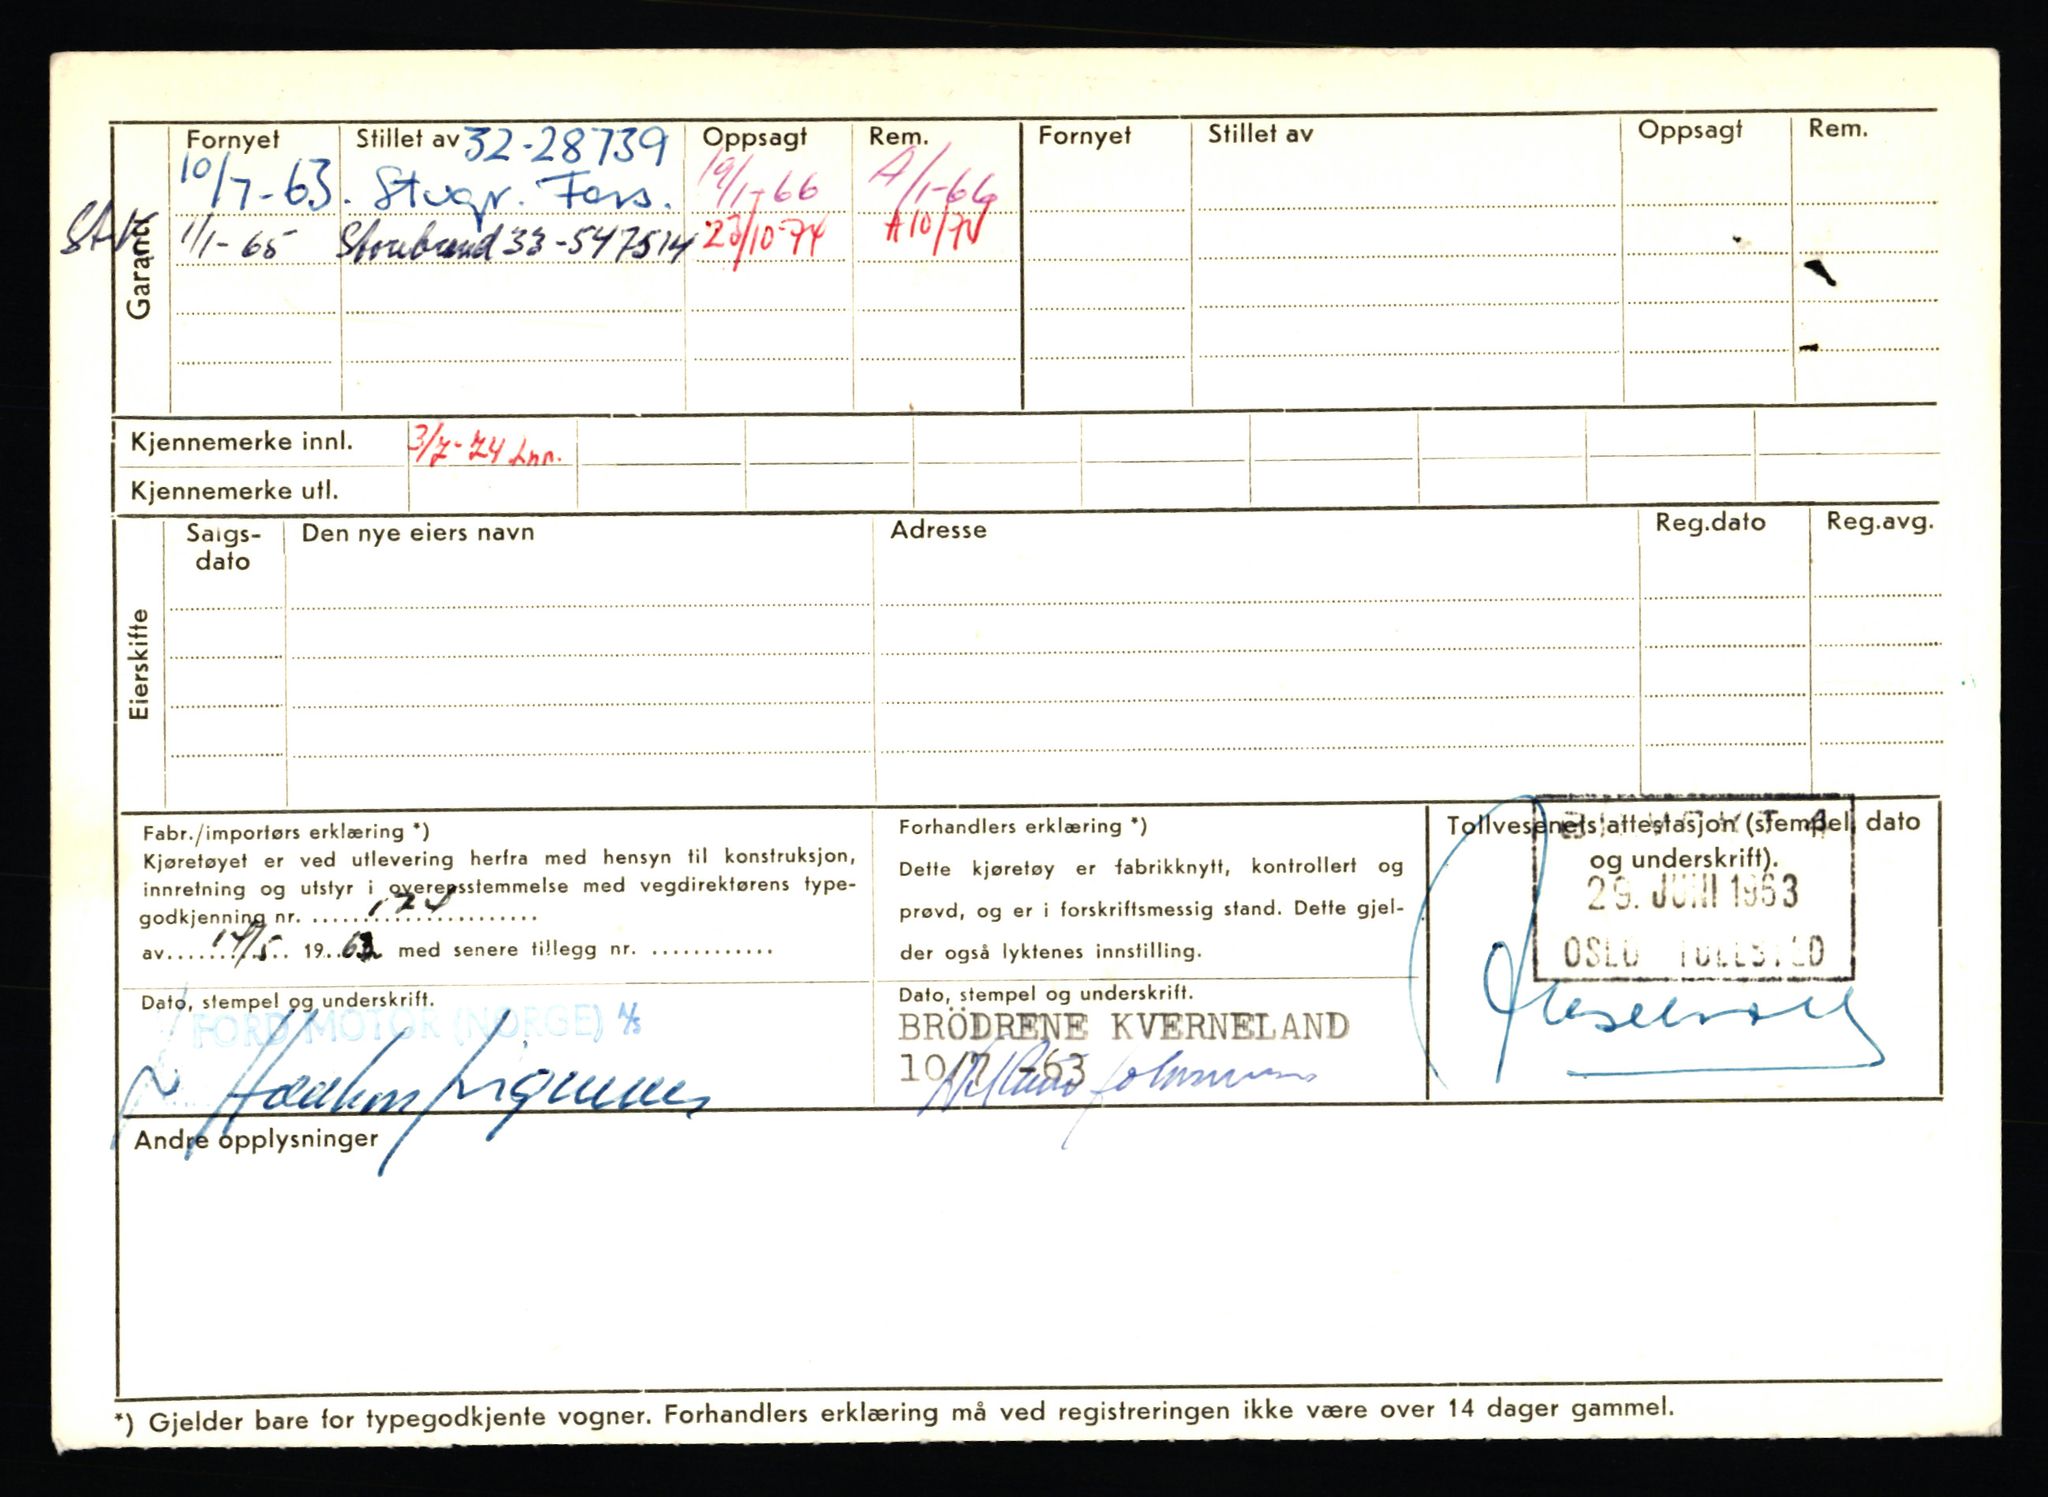 Garanti
Fornyet Stillet av 32-28739 Oppsagt Rem. Fornyet Stillet av Oppsagt Rem.
10/7-63. Stvgr. Fors. 19/1-66 A/1-66
1/1-65 Storebrand 33-547514 23/10-74 A10/74
Kjennemerke innl. 3/7-74 Inn.
Kjennemerke utl.
Eierskifte
Salgs-dato Den nye eiers navn Adresse Reg.dato Reg.avg.
Fabr./importørs erklæring *)
Kjøretøyet er ved utlevering herfra med hensyn til konstruksjon,
innretning og utstyr i overensstemmelse med vegdirektørens type-
godkjenning nr. ......................
av 14/5 1963 med senere tillegg nr. ............
Dato, stempel og underskrift.
FORD MOTOR (NORGE) A/S
Forhandlers erklæring *)
Dette kjøretøy er fabrikknytt, kontrollert og
prøvd, og er i forskriftsmessig stand. Dette gjel-
der også lyktenes innstilling.
Dato, stempel og underskrift.
BRÖDRENE KVERNELAND
10/7 -63
Tollvesenets attestasjon (stempel, dato
og underskrift).
29. JUNI 1963
OSLO TOLLSTED
Andre opplysninger
*) Gjelder bare for typegodkjente vogner. Forhandlers erklæring må ved registreringen ikke være over 14 dager gammel.